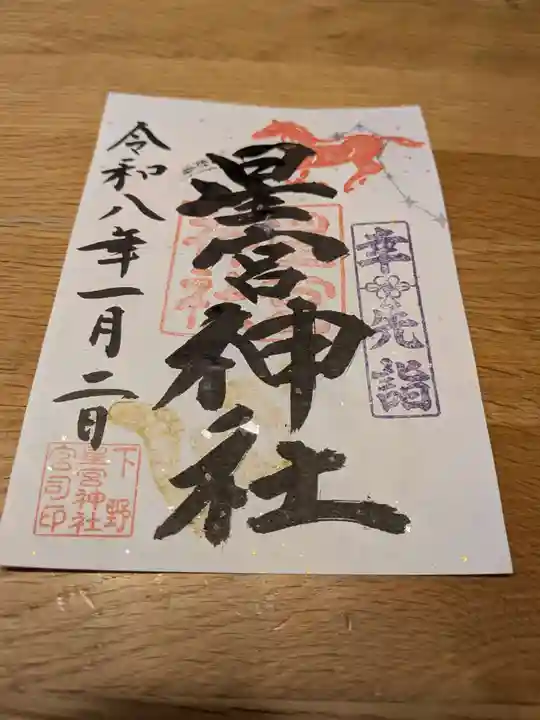 幸先詣
星宮神社
令和八年一月二日
下野
星宮神社
宮司印